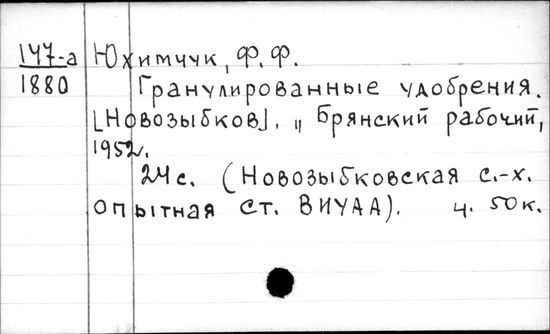 147-а Юхимчук, Ф. Ф.
1880 Гранулированные удобрения.
[Новозыбков]. „Брянский рабочий",
1952.
24 с. (Новозыбковская с.-х.
опытная ст. ВИУАА). ц. 50 к.